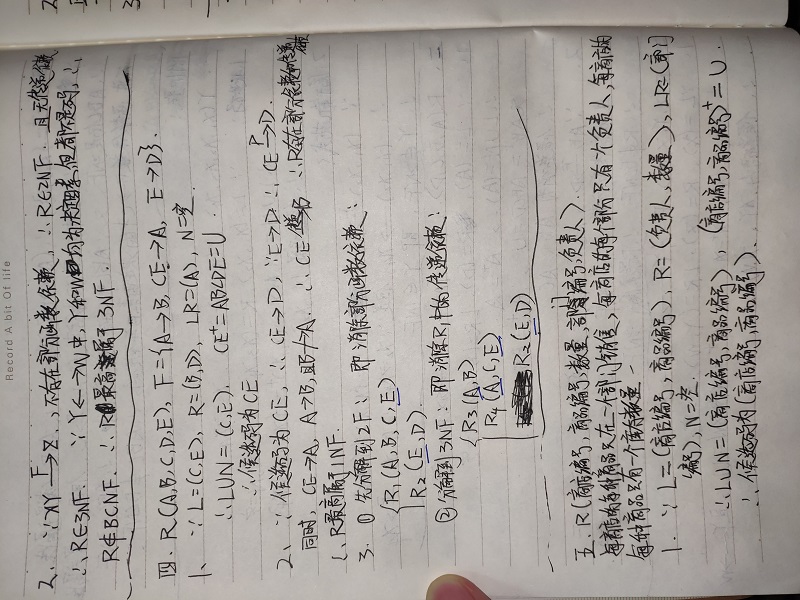 2、∵ XY →F Z ，不存在部分函数依赖，∴ R∈2NF. 且无传递依赖
∴ R∈3NF. ∵ Y←→N中，Y和W均为决定因素，但都不是码，∴
R∉BCNF. ∴ R最高属于3NF.
四、R(A,B,C,D,E)，F={A→B, CE→A, E→D}.
1、∵ L=(C,E)，R=(B,D)，LR=(A)，N=空
∴ LUN=(C,E). CE⁺=ABCDE=U
∴ 候选码为CE
2、∵ 候选码为CE，∴ CE→D，∵E→D ∴ CE →P D.
同时，CE→A，A→B，且B↛A. ∴ CE 传递 B ∴ R存在部分依赖和传递依赖
∴ R最高属于1NF.
3. ① 先分解到2F： 即消除部分函数依赖：
R₁(A,B,C,E)
R₂(E,D)
② 分解到3NF：即消除R₁中的传递依赖：
R₃(A,B)
R₄(A,C,E)
R₂(E,D)
五、R(商店编号,商品编号,数量,部门编号,负责人)
每商店的每种商品只在一个部门销售，每商店的每个部门只有一个负责人，每商店的
每种商品只有一个库存数量.
1、∵ L=(商店编号，商品编号)，R=(负责人，数量)，LR=(部门
编号)，N=空.
∴ LUN=(商店编号，商品编号)，(商店编号，商品编号)⁺=U.
∴ 候选码为(商店编号，商品编号).
Record A bit Of life